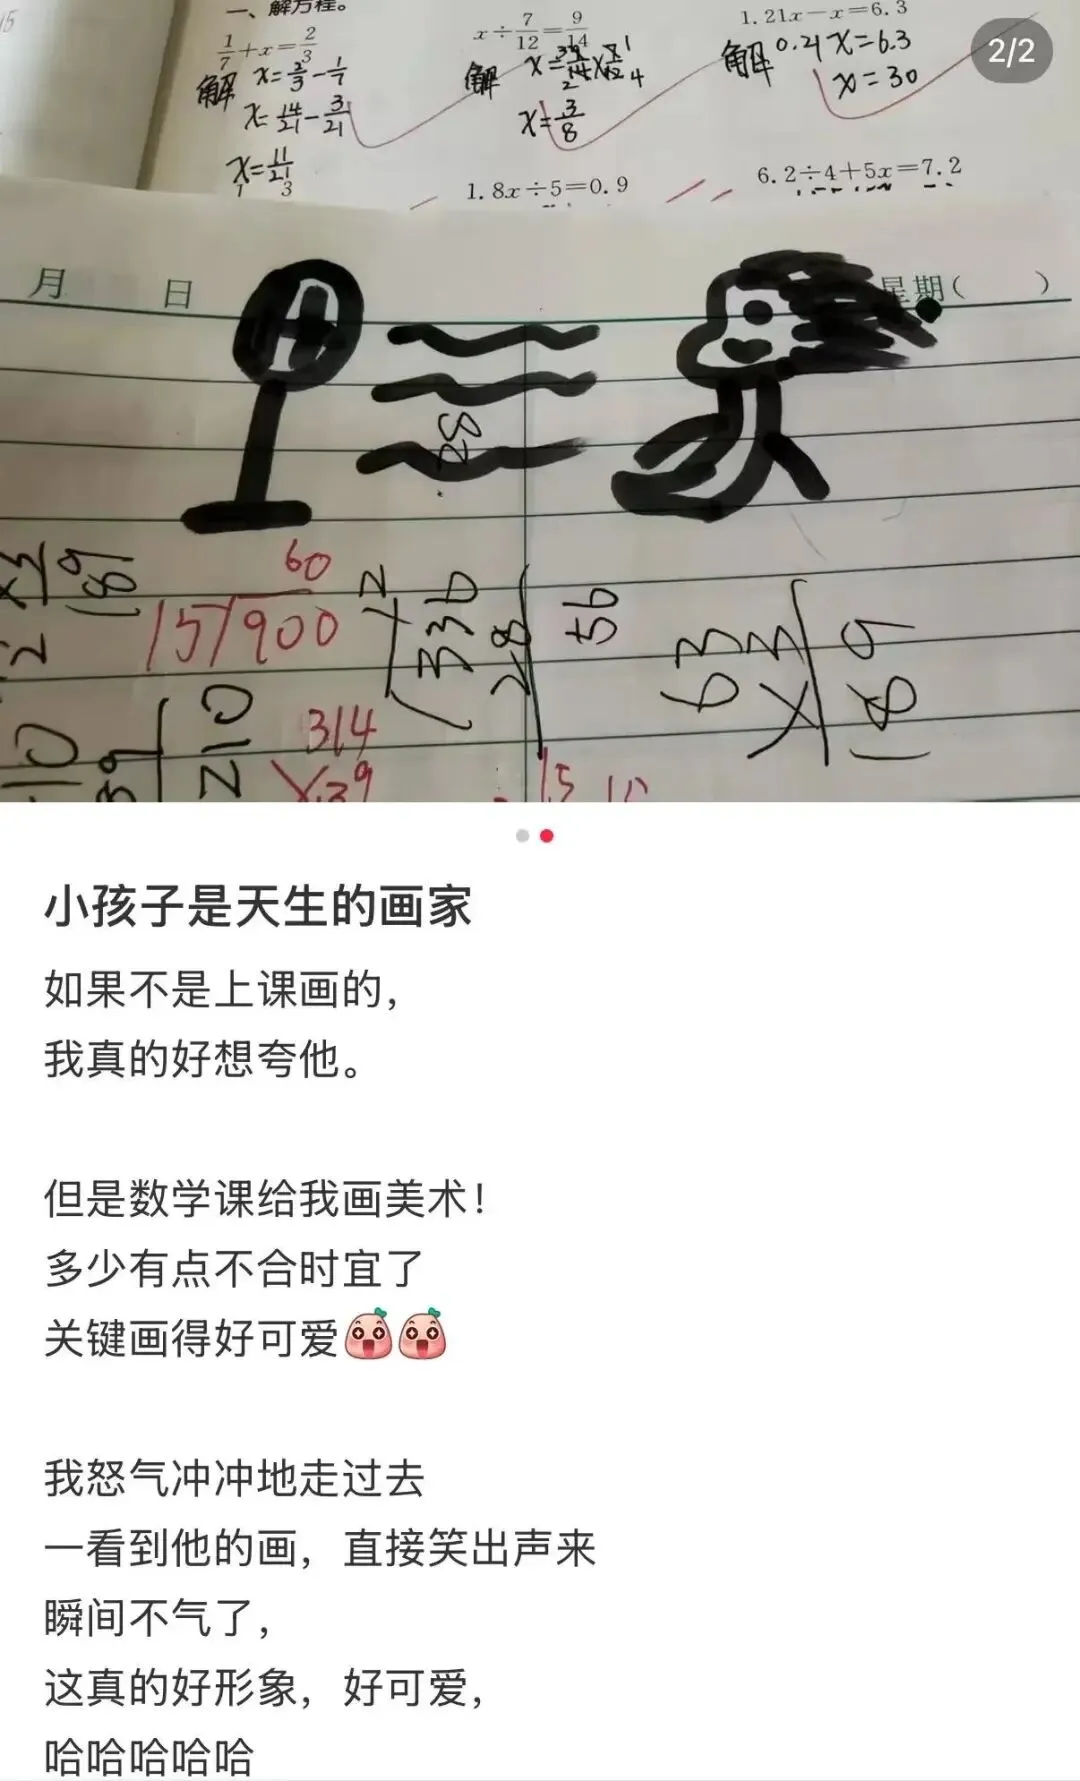 2/2
一、解方程。
1/7+x=2/3
x÷7/12=9/14
1.21x-x=6.3
解 x=2/3-1/7
x=14/21-3/21
x=11/21
解
x=3/8
解 0.21x=6.3
x=30
1.8x÷5=0.9
6.2÷4+5x=7.2
月 日 星期( )
28
60
15/900
336
28
56
63
×3
189
189
210
314
小孩子是天生的画家
如果不是上课画的，
我真的好想夸他。
但是数学课给我画美术！
多少有点不合时宜了
关键画得好可爱
我怒气冲冲地走过去
一看到他的画，直接笑出声来
瞬间不气了，
这真的好形象，好可爱，
哈哈哈哈哈